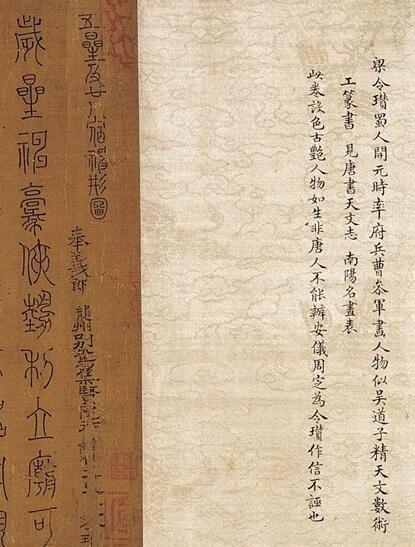 梁令瓚蜀人開元時率府兵曹叅軍畫人物似吳道子精天文數術
工篆書 見唐書天文志 南陽名畫表
此卷設色古艷人物如生非唐人不能辦安儀周定為令瓚作信不誣也
五星及廿八宿神形圖
奉義郎 隴州別駕集賢院
歲星神豪俠勢利立廟可